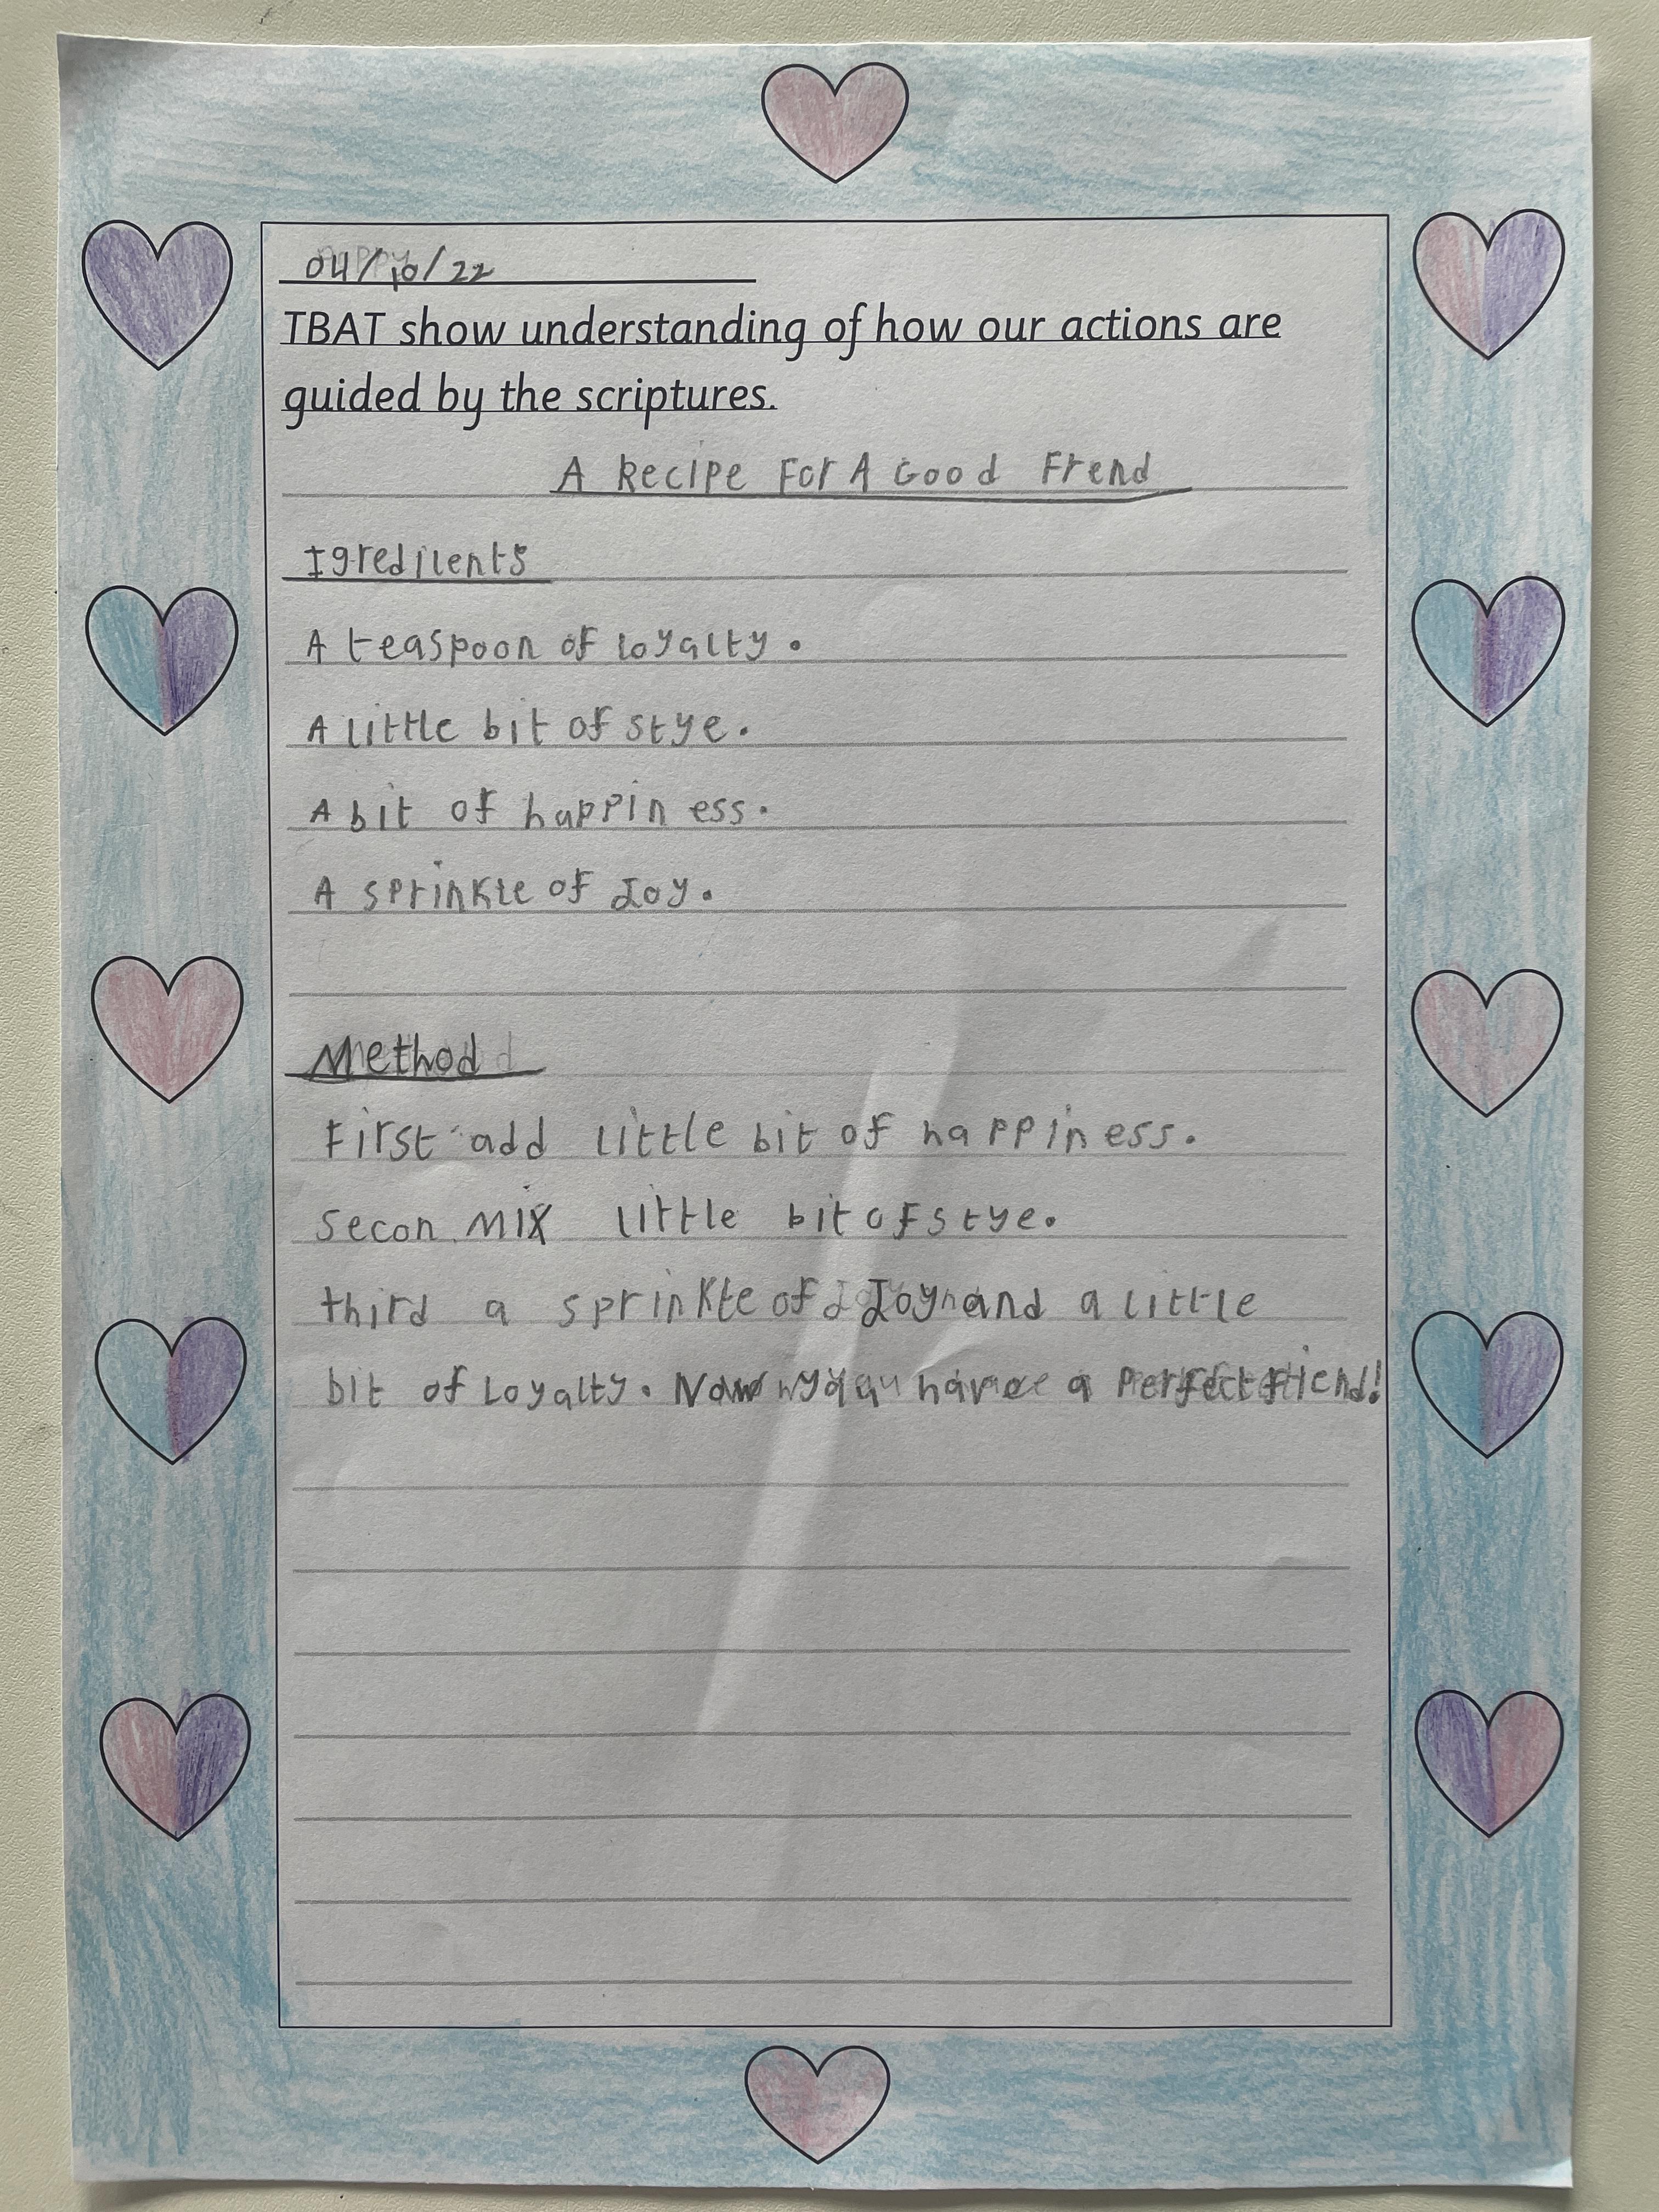 04/10/22
TBAT show understanding of how our actions are
guided by the scriptures.
A Recipe For A Good Frend
Igredilents
A teaspoon of loyalty.
A little bit of stye.
A bit of happin ess.
A sprinkle of Joy.
Method
First add little bit of happiness.
Secon Mix little bit of stye.
third a sprinkle of Joy and a little
bit of Loyalty. Now you have a Perfect friend!